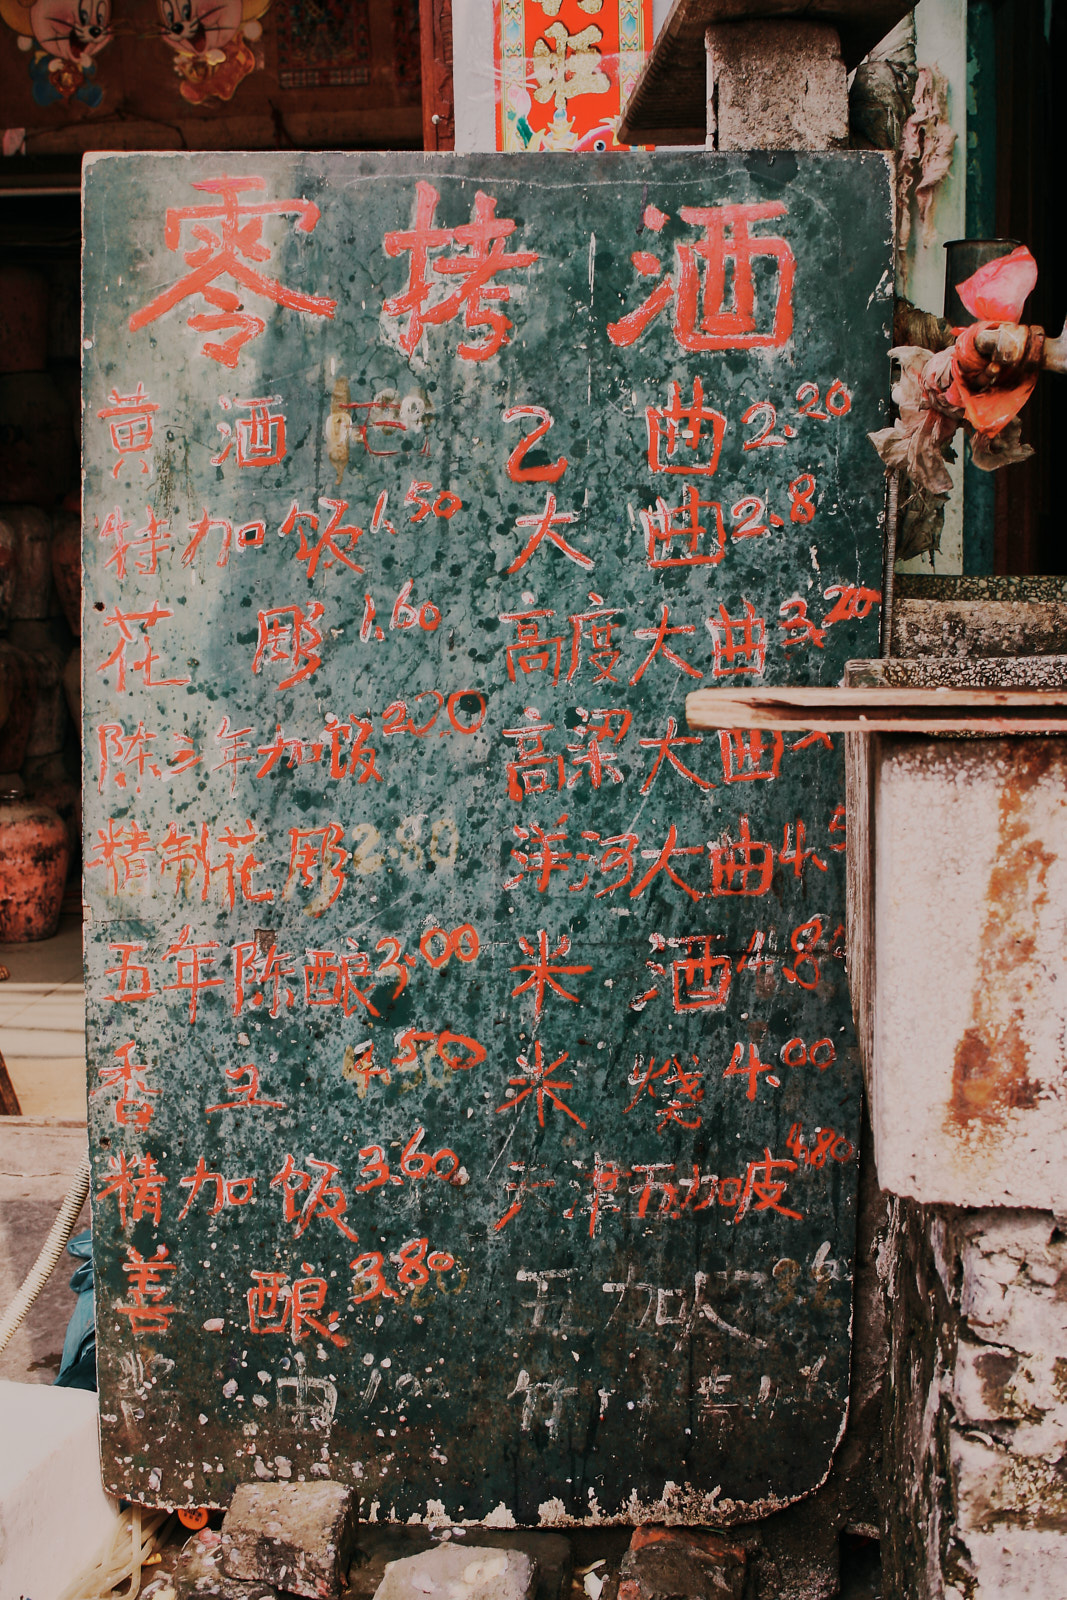 旺
零拷酒
黄酒
特加饭1.50
花彫1.60
陈三年加饭2.20
精制花彫2.80
五年陈酿3.00
香卫4.50
精加饭3.60
善酿3.80
乙曲2.20
大曲2.8
高度大曲3.20
高梁大曲
洋河大曲4.5
米酒4.80
米烧4.00
天津五加皮4.80
五加皮
竹